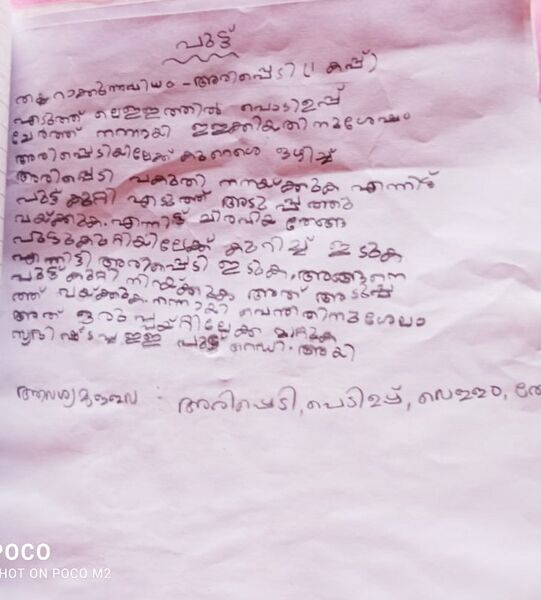 പുട്ട്
തയ്യാറാക്കുന്നവിധം - അരിപ്പൊടി (1 കപ്പ്)
എടുത്ത് വെള്ളത്തിൽ പൊടിഉപ്പ്
ചേർത്ത് നന്നായി ഇളക്കിയതിനുശേഷം
അരിപ്പെടിയിലേക്ക് കുറേശെ ഒഴിച്ച്
അരിപ്പെടി പകുതി നനയ്ക്കുക എന്നിട്ട്
പുട്ട് കുറ്റി എടുത്ത് അടുപ്പത്തു
വയ്ക്കുക. എന്നിട്ട് ചിരവിയ തേങ്ങ
പുട്ടുകുറ്റിയിലേക്ക് കുറിച്ച് ഇടുക
എന്നിട്ടി അരിപ്പെടി ഇടുക, അങ്ങനെ
പുട്ട് കുറ്റി നിറയ്ക്കുക അത് അടുപ്പ
ത്ത് വയ്ക്കുക. നന്നായി വെന്തതിനുശേഷം
അത് ഒരു പ്ലെയ്റ്റിലേക്ക് മാറ്റുക
പുട്ട് റെഡി. ആയി
ആവശ്യമുള്ളവ : അരിപ്പെടി, പെടിഉപ്പ്, വെള്ളം, തേ
POCO
SHOT ON POCO M2